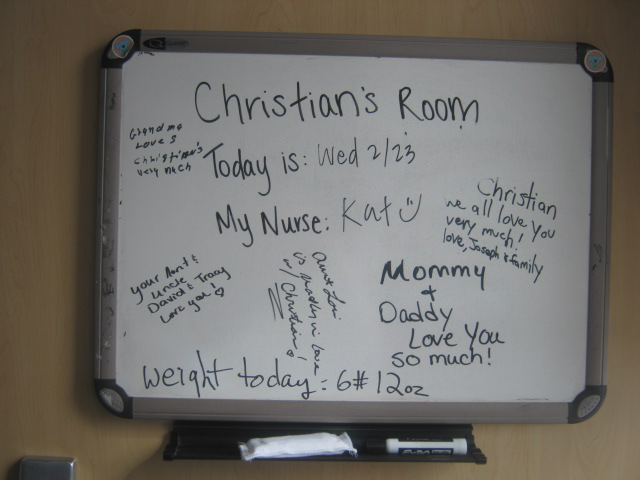 Christian's Room
Grandma
Loves
Christian's
very much
Today is: Wed 2/23
My Nurse: Kat
Christian
we all love you
very much!
love, Joseph & family
your Aunt &
Uncle
David & Tracy
Love you!
Aunt Lori
is madly in love
w/ Christian!
Mommy
&
Daddy
Love You
so much!
weight today: 6# 12oz